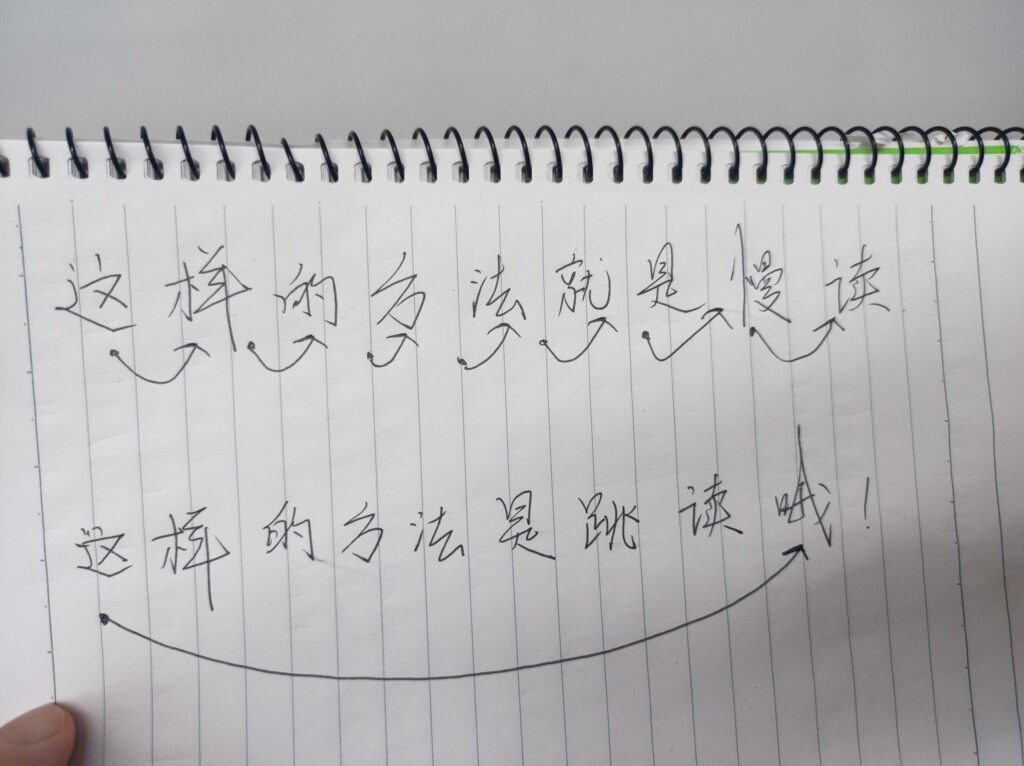 这样的方法就是慢读
这样的方法是跳读哦!